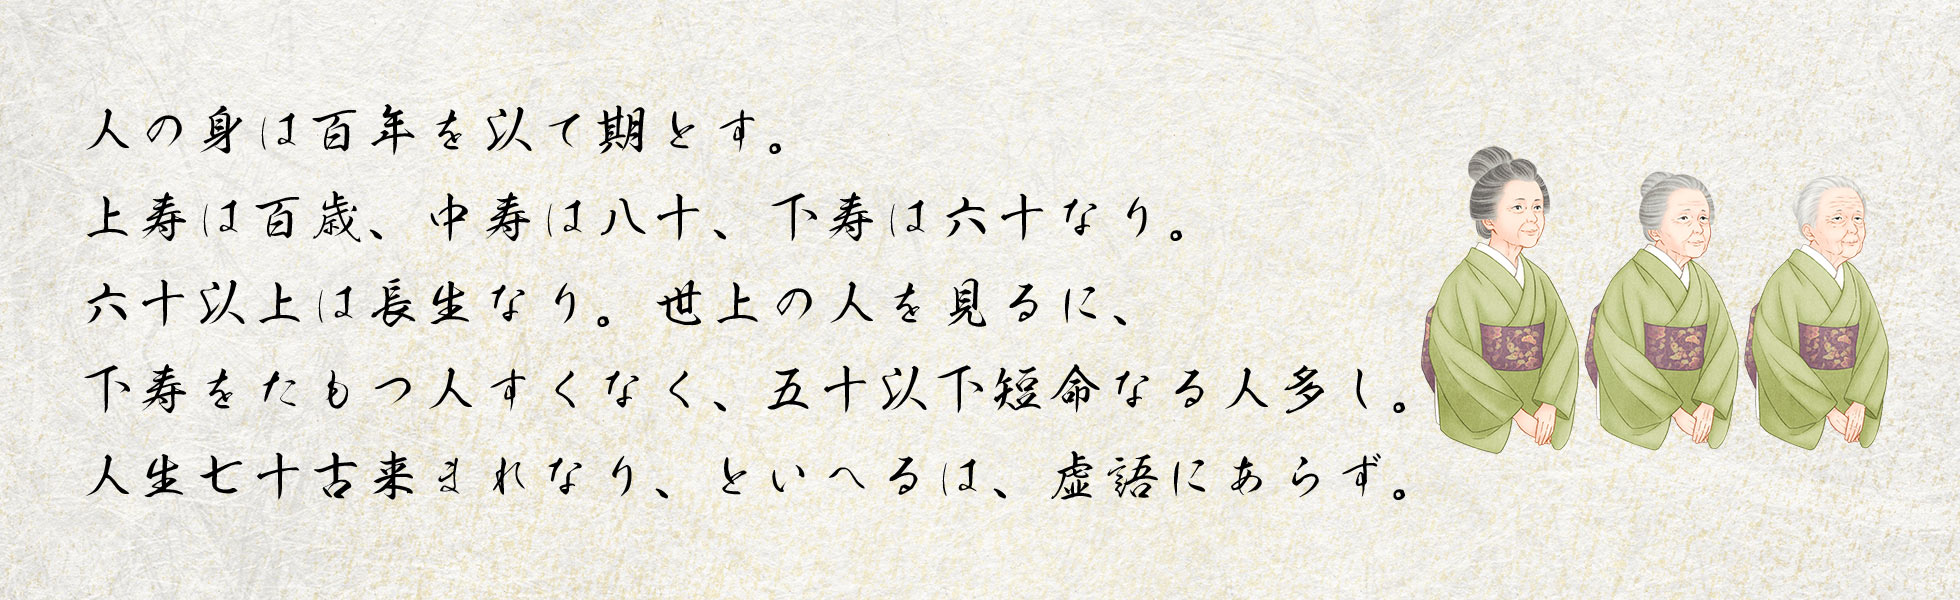 人の身は百年を以て期とす。
上寿は百歳、中寿は八十、下寿は六十なり。
六十以上は長生なり。世上の人を見るに、
下寿をたもつ人すくなく、五十以下短命なる人多し。
人生七十古来まれなり、といへるは、虚語にあらず。